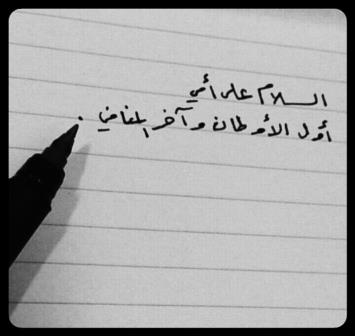 السلام على أمي
أول الأوطان و آخر المنافي .